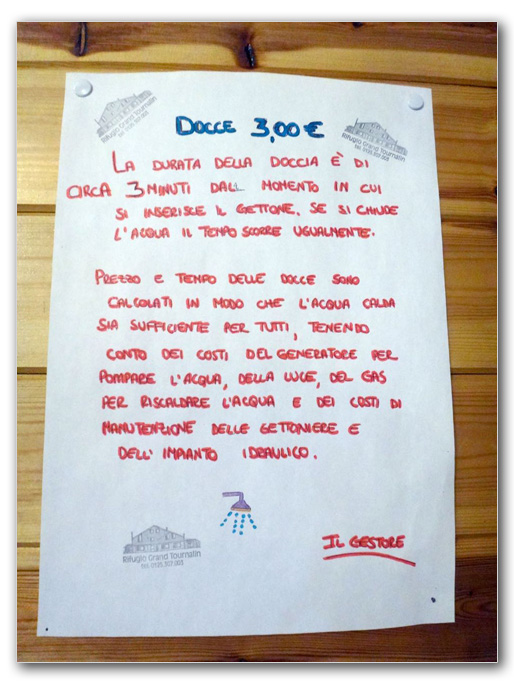 Rifugio Grand Tournalin
tel. 0125.307.003
Rifugio Grand Tournalin
tel. 0125.307.003
DOCCE 3,00 €
LA DURATA DELLA DOCCIA È DI
CIRCA 3 MINUTI DAL MOMENTO IN CUI
SI INSERISCE IL GETTONE. SE SI CHIUDE
L'ACQUA IL TEMPO SCORRE UGUALMENTE.
PREZZO E TEMPO DELLE DOCCE SONO
CALCOLATI IN MODO CHE L'ACQUA CALDA
SIA SUFFICIENTE PER TUTTI, TENENDO
CONTO DEI COSTI DEL GENERATORE PER
POMPARE L'ACQUA, DELLA LUCE, DEL GAS
PER RISCALDARE L'ACQUA E DEI COSTI DI
MANUTENZIONE DELLE GETTONIERE E
DELL'IMPIANTO IDRAULICO.
IL GESTORE
Rifugio Grand Tournalin
tel. 0125.307.003